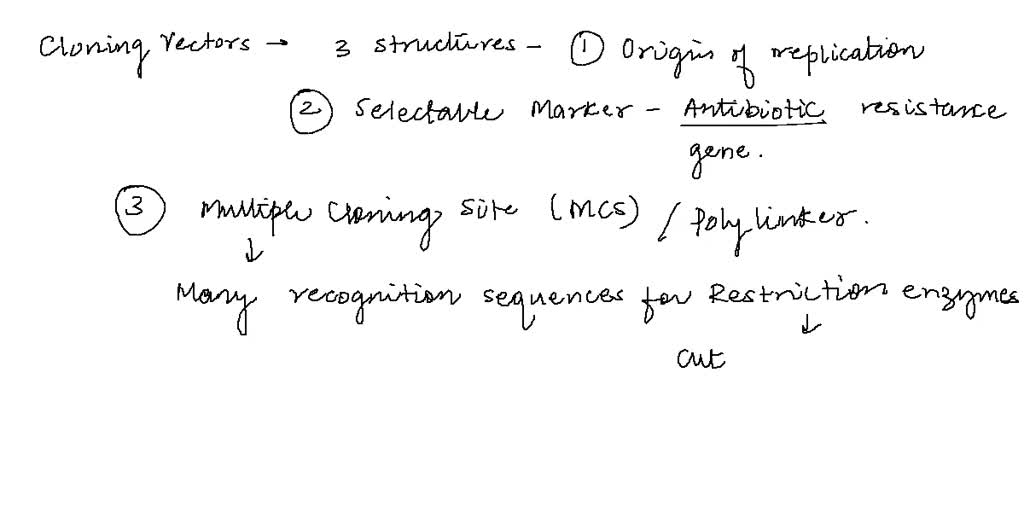 Cloning Vectors → 3 structures - ① Origin of replication
② Selectable Marker - Antibiotic resistance
gene.
③ Multiple Cloning Site (MCS) / Polylinker.
↓
Many recognition sequences for Restriction enzymes
↓
cut